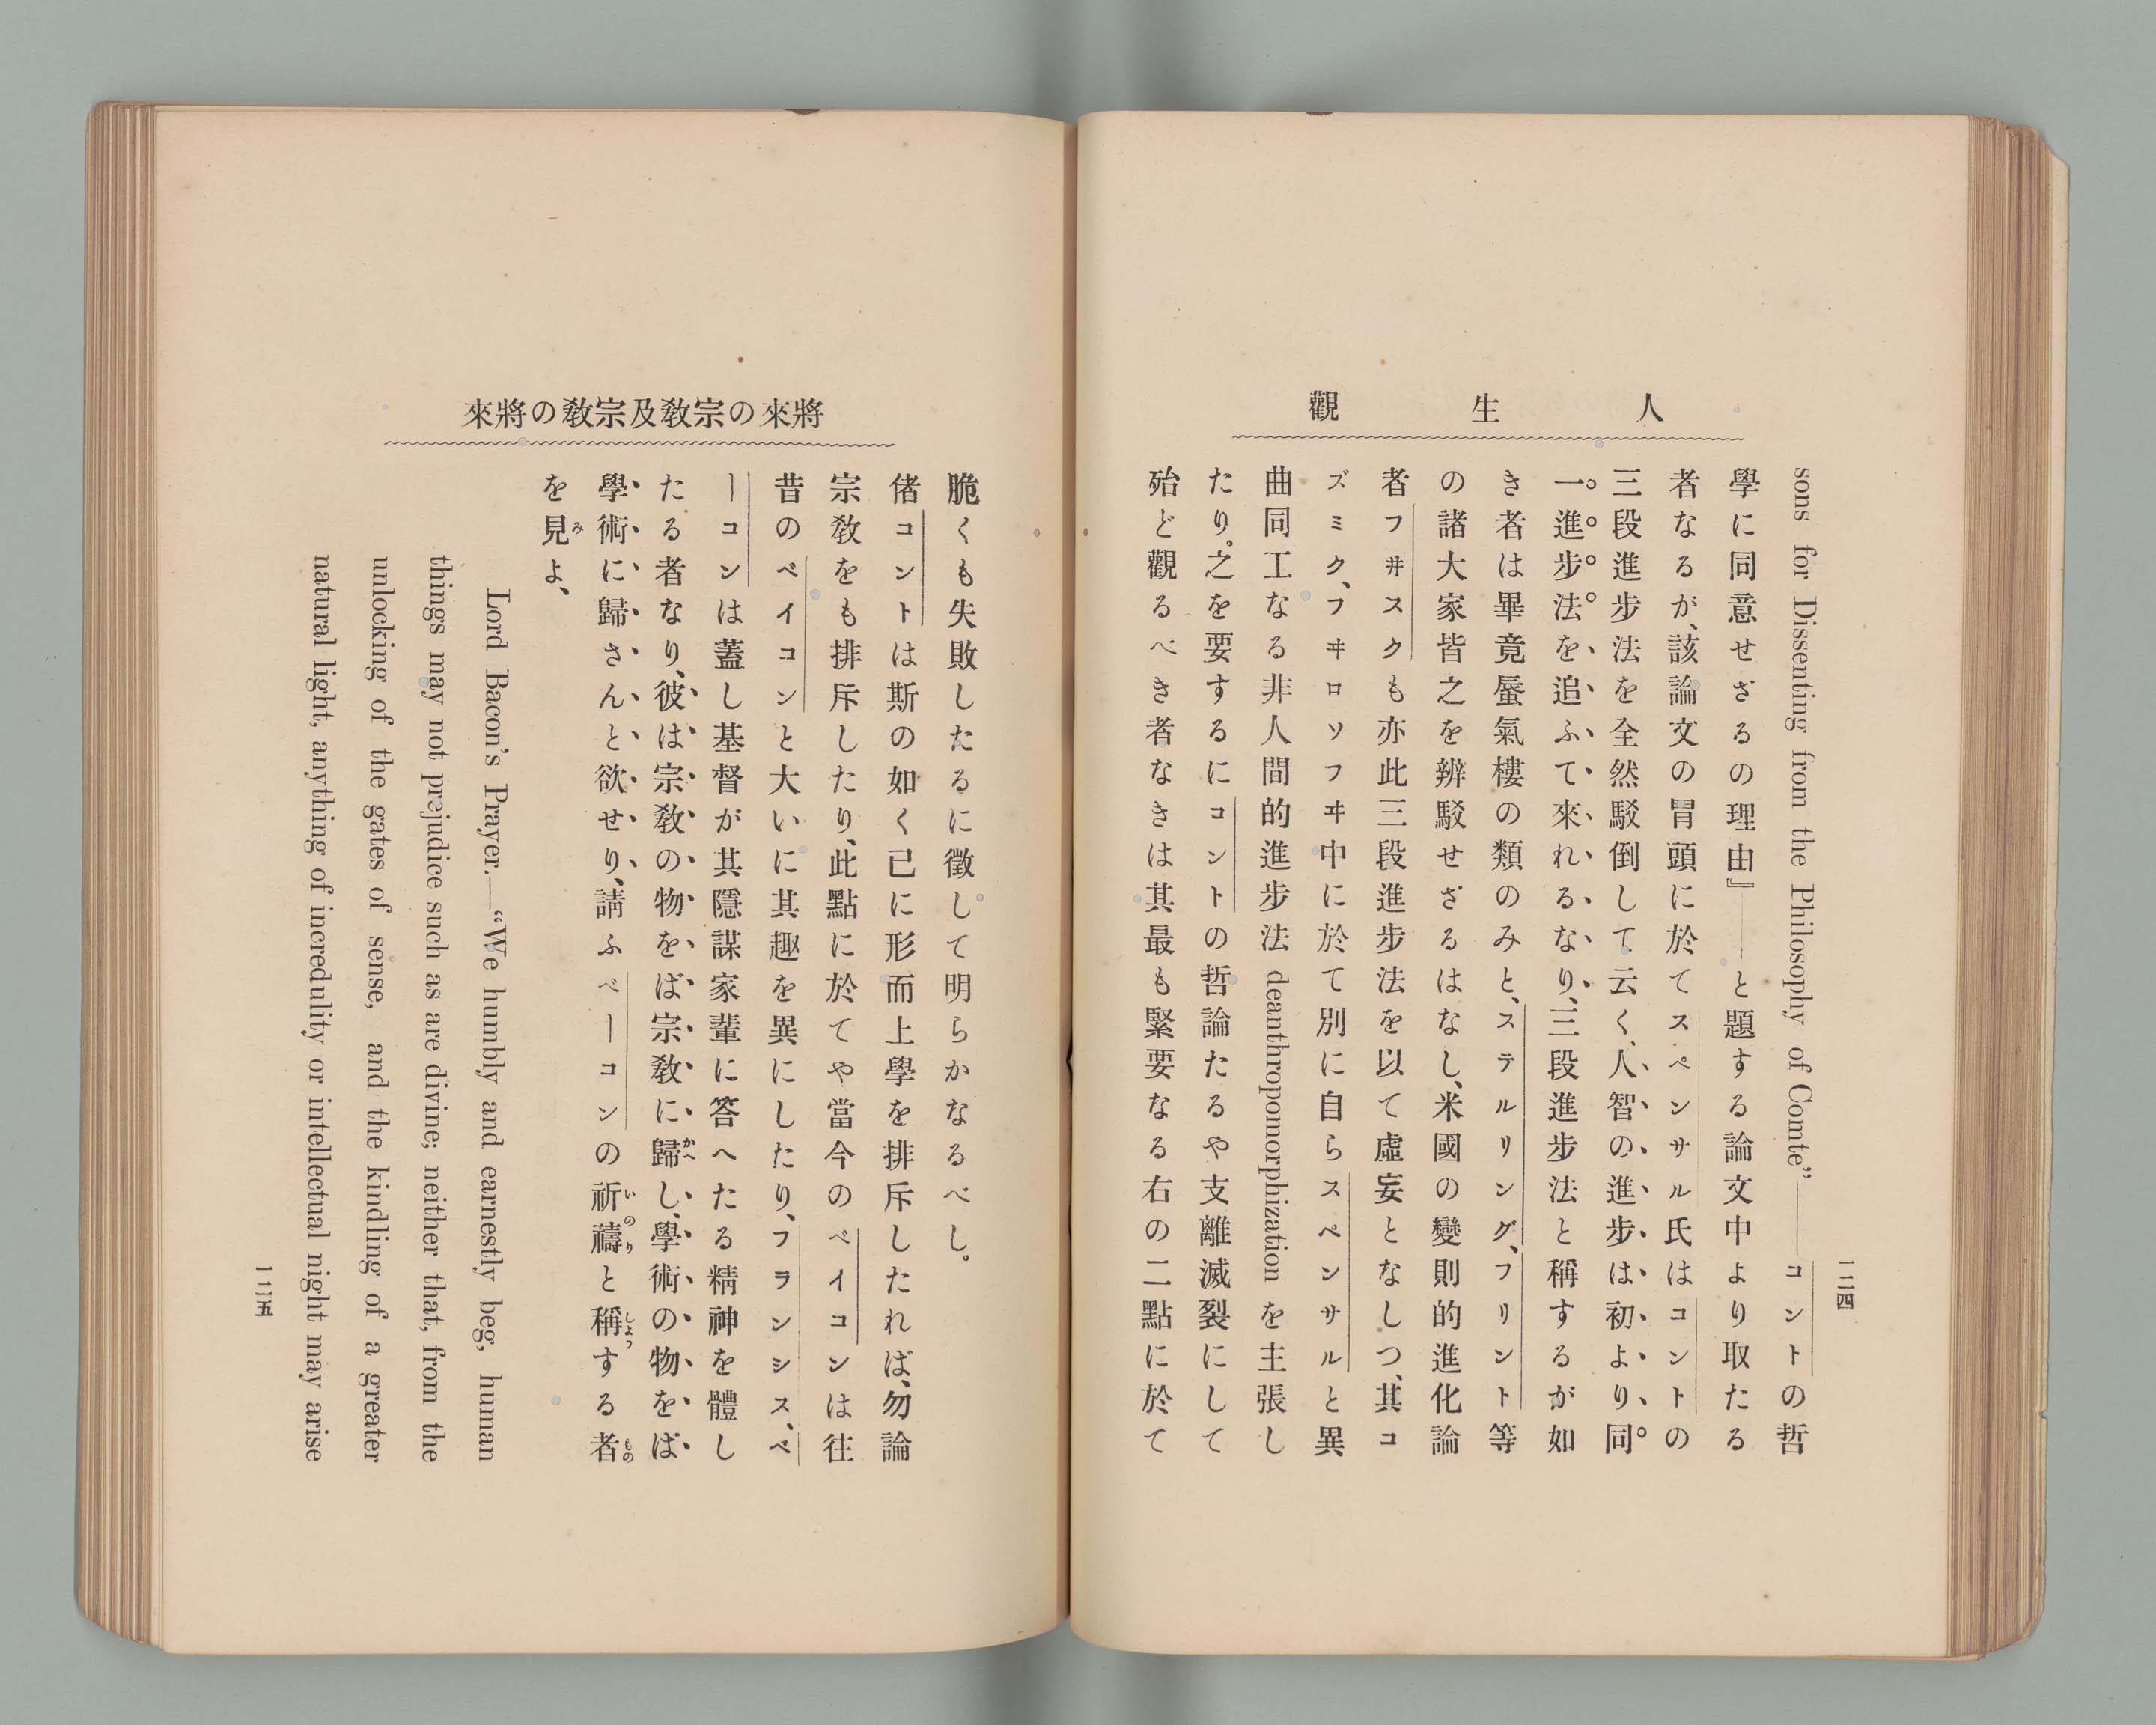 人生觀
一二四
sons for Dissenting from the Philosophy of Comte”——コントの哲
學に同意せざるの理由』——と題する論文中より取たる
者なるが、該論文の冒頭に於てスペンサル氏はコントの
三段進步法を全然駁倒して云く、人智の進步は初より、同
一進步法を追ふて來れるなり、三段進步法と稱するが如
き者は畢竟蜃氣樓の類のみと、ステルリング、フリント等
の諸大家皆之を辨駁せざるはなし、米國の變則的進化論
者フヰスクも亦此三段進步法を以て虛妄となしつ、其コ
ズミク、フヰロソフヰ中に於て別に自らスペンサルと異
曲同工なる非人間的進步法 deanthropomorphization を主張し
たり。之を要するにコントの哲論たるや支離滅裂にして
殆ど觀るべき者なきは其最も緊要なる右の二點に於て
將來の宗敎及宗敎の將來
脆くも失敗したるに徵して明らかなるべし。
偖コントは斯の如く已に形而上學を排斥したれば、勿論
宗敎をも排斥したり、此點に於てや當今のベイコンは往
昔のベイコンと大いに其趣を異にしたり、フランシス、ベ
ーコンは蓋し基督が其隱謀家輩に答へたる精神を體し
たる者なり、彼は宗敎の物をば宗敎に歸し、學術の物をば
學術に歸さんと欲せり、請ふベーコンの祈禱と稱する者
を見よ、
Lord Bacon’s Prayer.—“We humbly and earnestly beg, human
things may not prejudice such as are divine; neither that, from the
unlocking of the gates of sense, and the kindling of a greater
natural light, anything of incredulity or intellectual night may arise
一二五